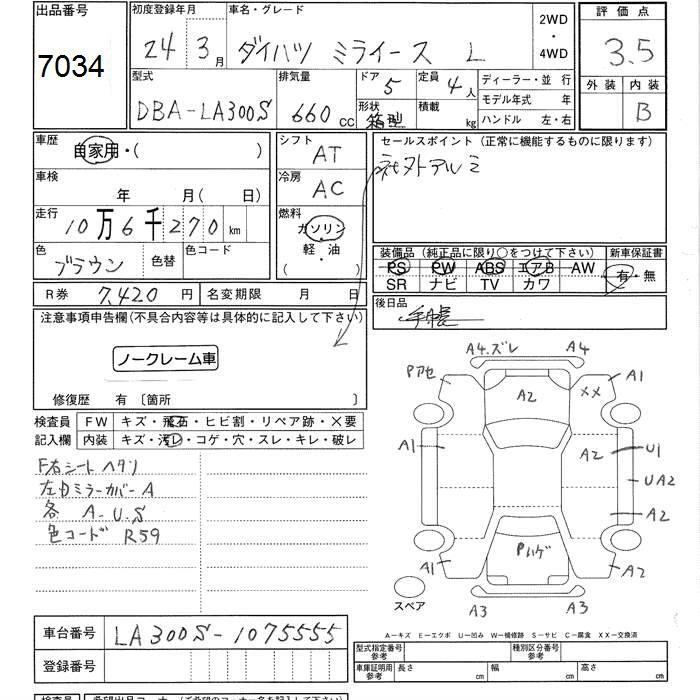 出品番号
7034
初度登録年月
24 3月
車名・グレード
ダイハツ ミライース L
2WD
・
4WD
評価点
3.5
外装 内装
B
型式
DBA-LA300S
排気量
660 CC
ドア
5
定員
4人
形状
箱型
積載
kg
ディーラー・並行
モデル年式 年
ハンドル 左・右
車歴
自家用・( )
車検
年 月(日)
走行
10万6千270km
色
ブラウン
色替
色コード
シフト
AT
冷房
AC
燃料
ガソリン
・
軽・油
( )
セールスポイント (正常に機能するものに限ります)
社外アルミ
装備品 (純正品に限り○をつけて下さい)
PS PW ABS エアB AW
SR ナビ TV カワ
新車保証書
有・無
後日品
手帳
R券 7,420円
名変期限 月 日
注意事項申告欄(不具合内容等は具体的に記入して下さい)
ノークレーム車
修復歴 有 [箇所 ]
検査員
記入欄
FW キズ・飛石・ヒビ割・リペア跡・×要
内装 キズ・汚レ・コゲ・穴・スレ・キレ・破レ
F右シート ヘタリ
左Dミラーカバー A
各 A.U.S
色コード R59
A4.ズレ A4
Pアセ A2 XX A1
A1 A2 U1
UA2
A2
Pハゲ
A1 A2
A3 A3
スペア
A-キズ E-エクボ U-凹み W-補修跡 S-サビ C-腐食 XX-交換済
車台番号 LA300S-1075555
登録番号
型式指定番号
参考
種別区分番号
参考
車庫証明用
参考
長さ cm 幅 cm 高さ cm
検査員 希望出品コーナー名 (ご希望のコーナー名を記入して下さい)